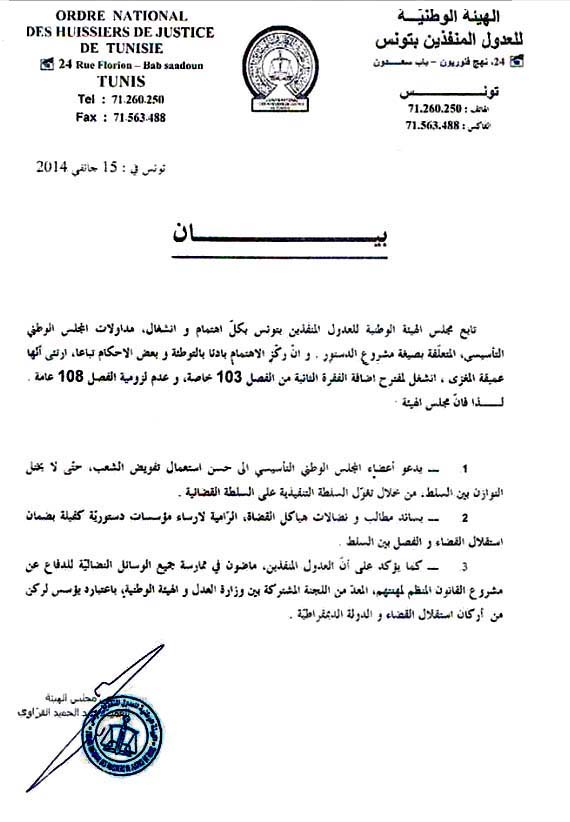 ORDRE NATIONAL
DES HUISSIERS DE JUSTICE
DE TUNISIE
24 Rue Florion – Bab saadoun
TUNIS
Tel : 71.260.250
Fax : 71.563.488
الهيئة الوطنيّة
للعدول المنفذين بتونس
24، نهج فلوريون – باب سعدون
تونس
الهاتف : 71.260.250
الفاكس : 71.563.488
تونس في : 15 جانفي 2014
بيان
تابع مجلس الهيئة الوطنية للعدول المنفذين بتونس بكلّ اهتمام و انشغال، مداولات المجلس الوطني
التأسيسي، المتعلّقة بصيغة مشروع الدستور . و انّ ركّز الاهتمام بادئا بالتوطئة و بعض الاحكام تباعا، ارتئى أنّها
عميقة المغزى ، انشغل لمقترح اضافة الفقرة الثانية من الفصل 103 خاصة، و عدم لزومية الفصل 108 عامة .
لـــذا فانّ مجلس الهيئة
1 ــ يدعو أعضاء المجلس الوطني التأسيسي الى حسن استعمال تفويض الشعب، حتّى لا يختل
التوازن بين السلط. من خلال تغوّل السلطة التنفيذية على السلطة القضائية .
2 ــ يساند مطالب و نضالات هياكل القضاة، الرّامية لارساء مؤسسات دستوريّة كفيلة بضمان
استقلال القضاء و الفصل بين السلط .
3 ــ كما يؤكد على أنّ العدول المنفذين، ماضون في ممارسة جميع الوسائل النضاليّة للدفاع عن
مشروع القانون المنظم لمهنتهم، المعدّ من اللجنة المشتركة بين وزارة العدل و الهيئة الوطنية، باعتباره يؤسس لركن
من أركان استقلال القضاء و الدولة الديمقراطيّة .
مجلس الهيئة
الحميد القزّاوى